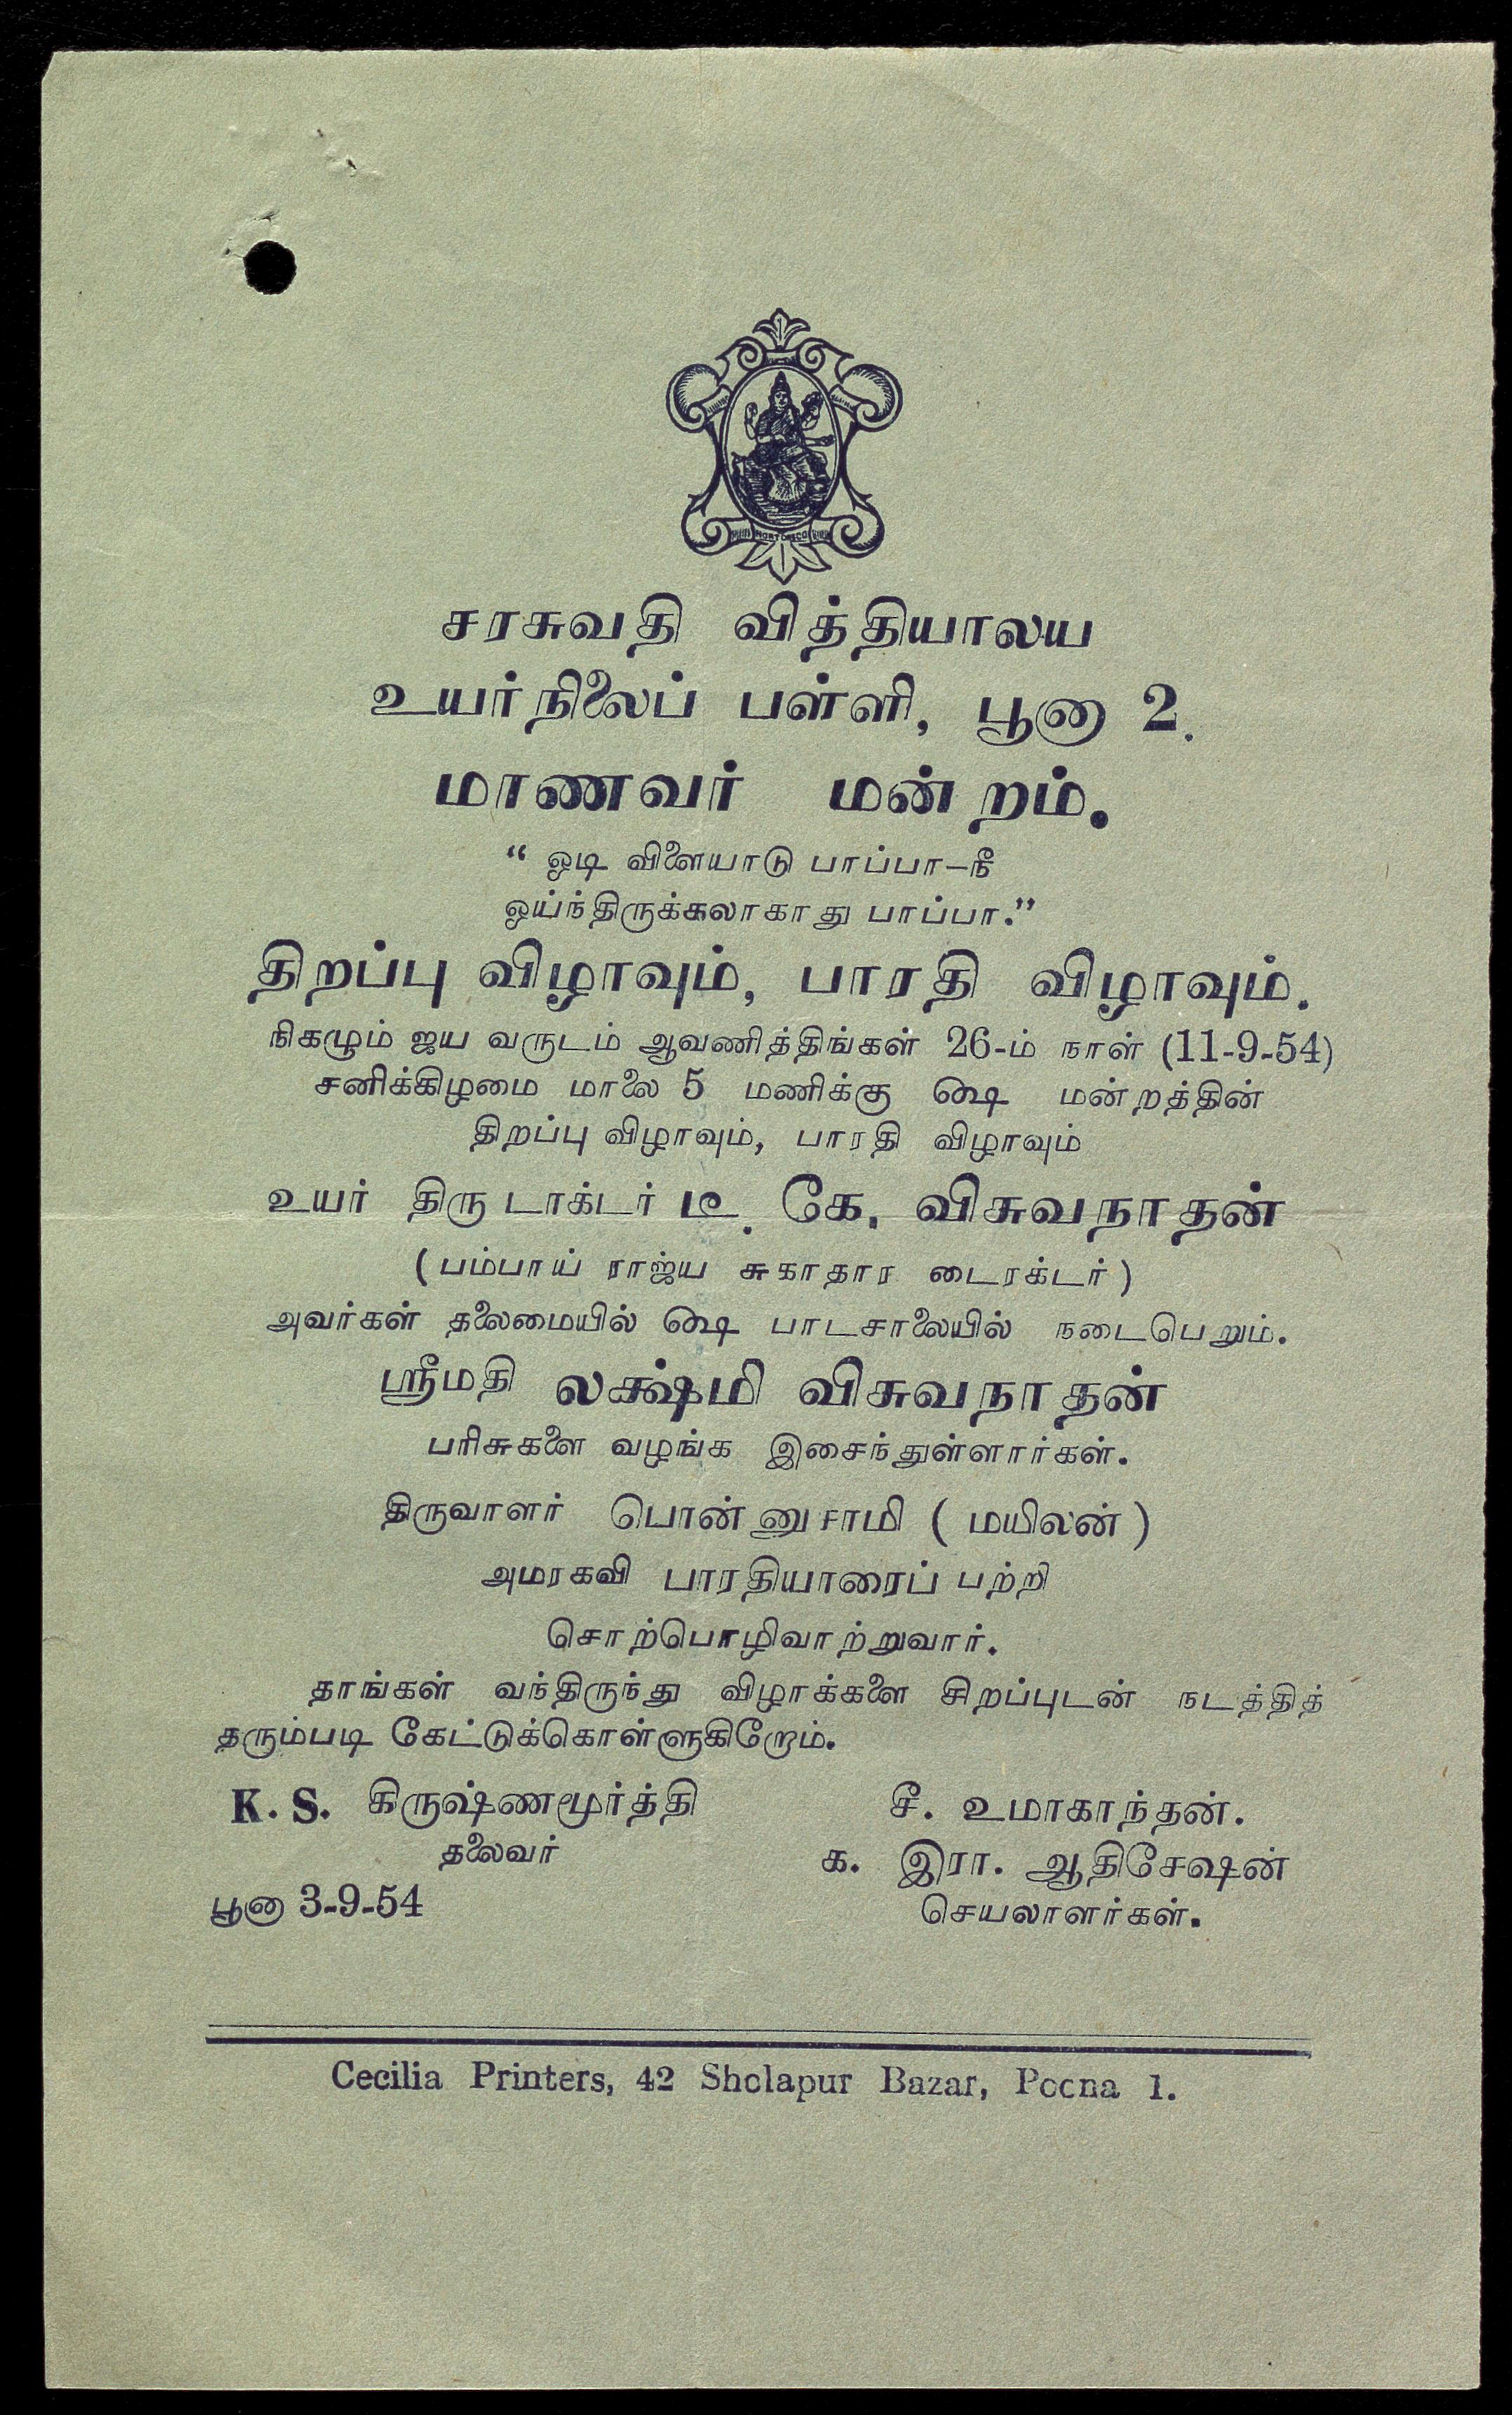 சரசுவதி வித்தியாலய
உயர்நிலைப் பள்ளி, பூனா 2.
மாணவர் மன்றம்.
“ ஓடி விளையாடு பாப்பா—நீ
ஓய்ந்திருக்கலாகாது பாப்பா.”
திறப்பு விழாவும், பாரதி விழாவும்.
நிகழும் ஜய வருடம் ஆவணித்திங்கள் 26-ம் நாள் (11-9-54)
சனிக்கிழமை மாலை 5 மணிக்கு ௸ மன்றத்தின்
திறப்பு விழாவும், பாரதி விழாவும்
உயர் திரு டாக்டர் டீ. கே. விசுவநாதன்
( பம்பாய் ராஜ்ய சுகாதார டைரக்டர் )
அவர்கள் தலைமையில் ௸ பாடசாலையில் நடைபெறும்.
ஸ்ரீமதி லக்ஷ்மி விசுவநாதன்
பரிசுகளை வழங்க இசைந்துள்ளார்கள்.
திருவாளர் பொன்னுசாமி ( மயிலன் )
அமரகவி பாரதியாரைப் பற்றி
சொற்பொழிவாற்றுவார்.
தாங்கள் வந்திருந்து விழாக்களை சிறப்புடன் நடத்தித்
தரும்படி கேட்டுக்கொள்ளுகிறோம்.
K. S. கிருஷ்ணமூர்த்தி
தலைவர்
பூனா 3-9-54
சீ. உமாகாந்தன்.
க. இரா. ஆதிசேஷன்
செயலாளர்கள்.
Cecilia Printers, 42 Sholapur Bazar, Poona 1.